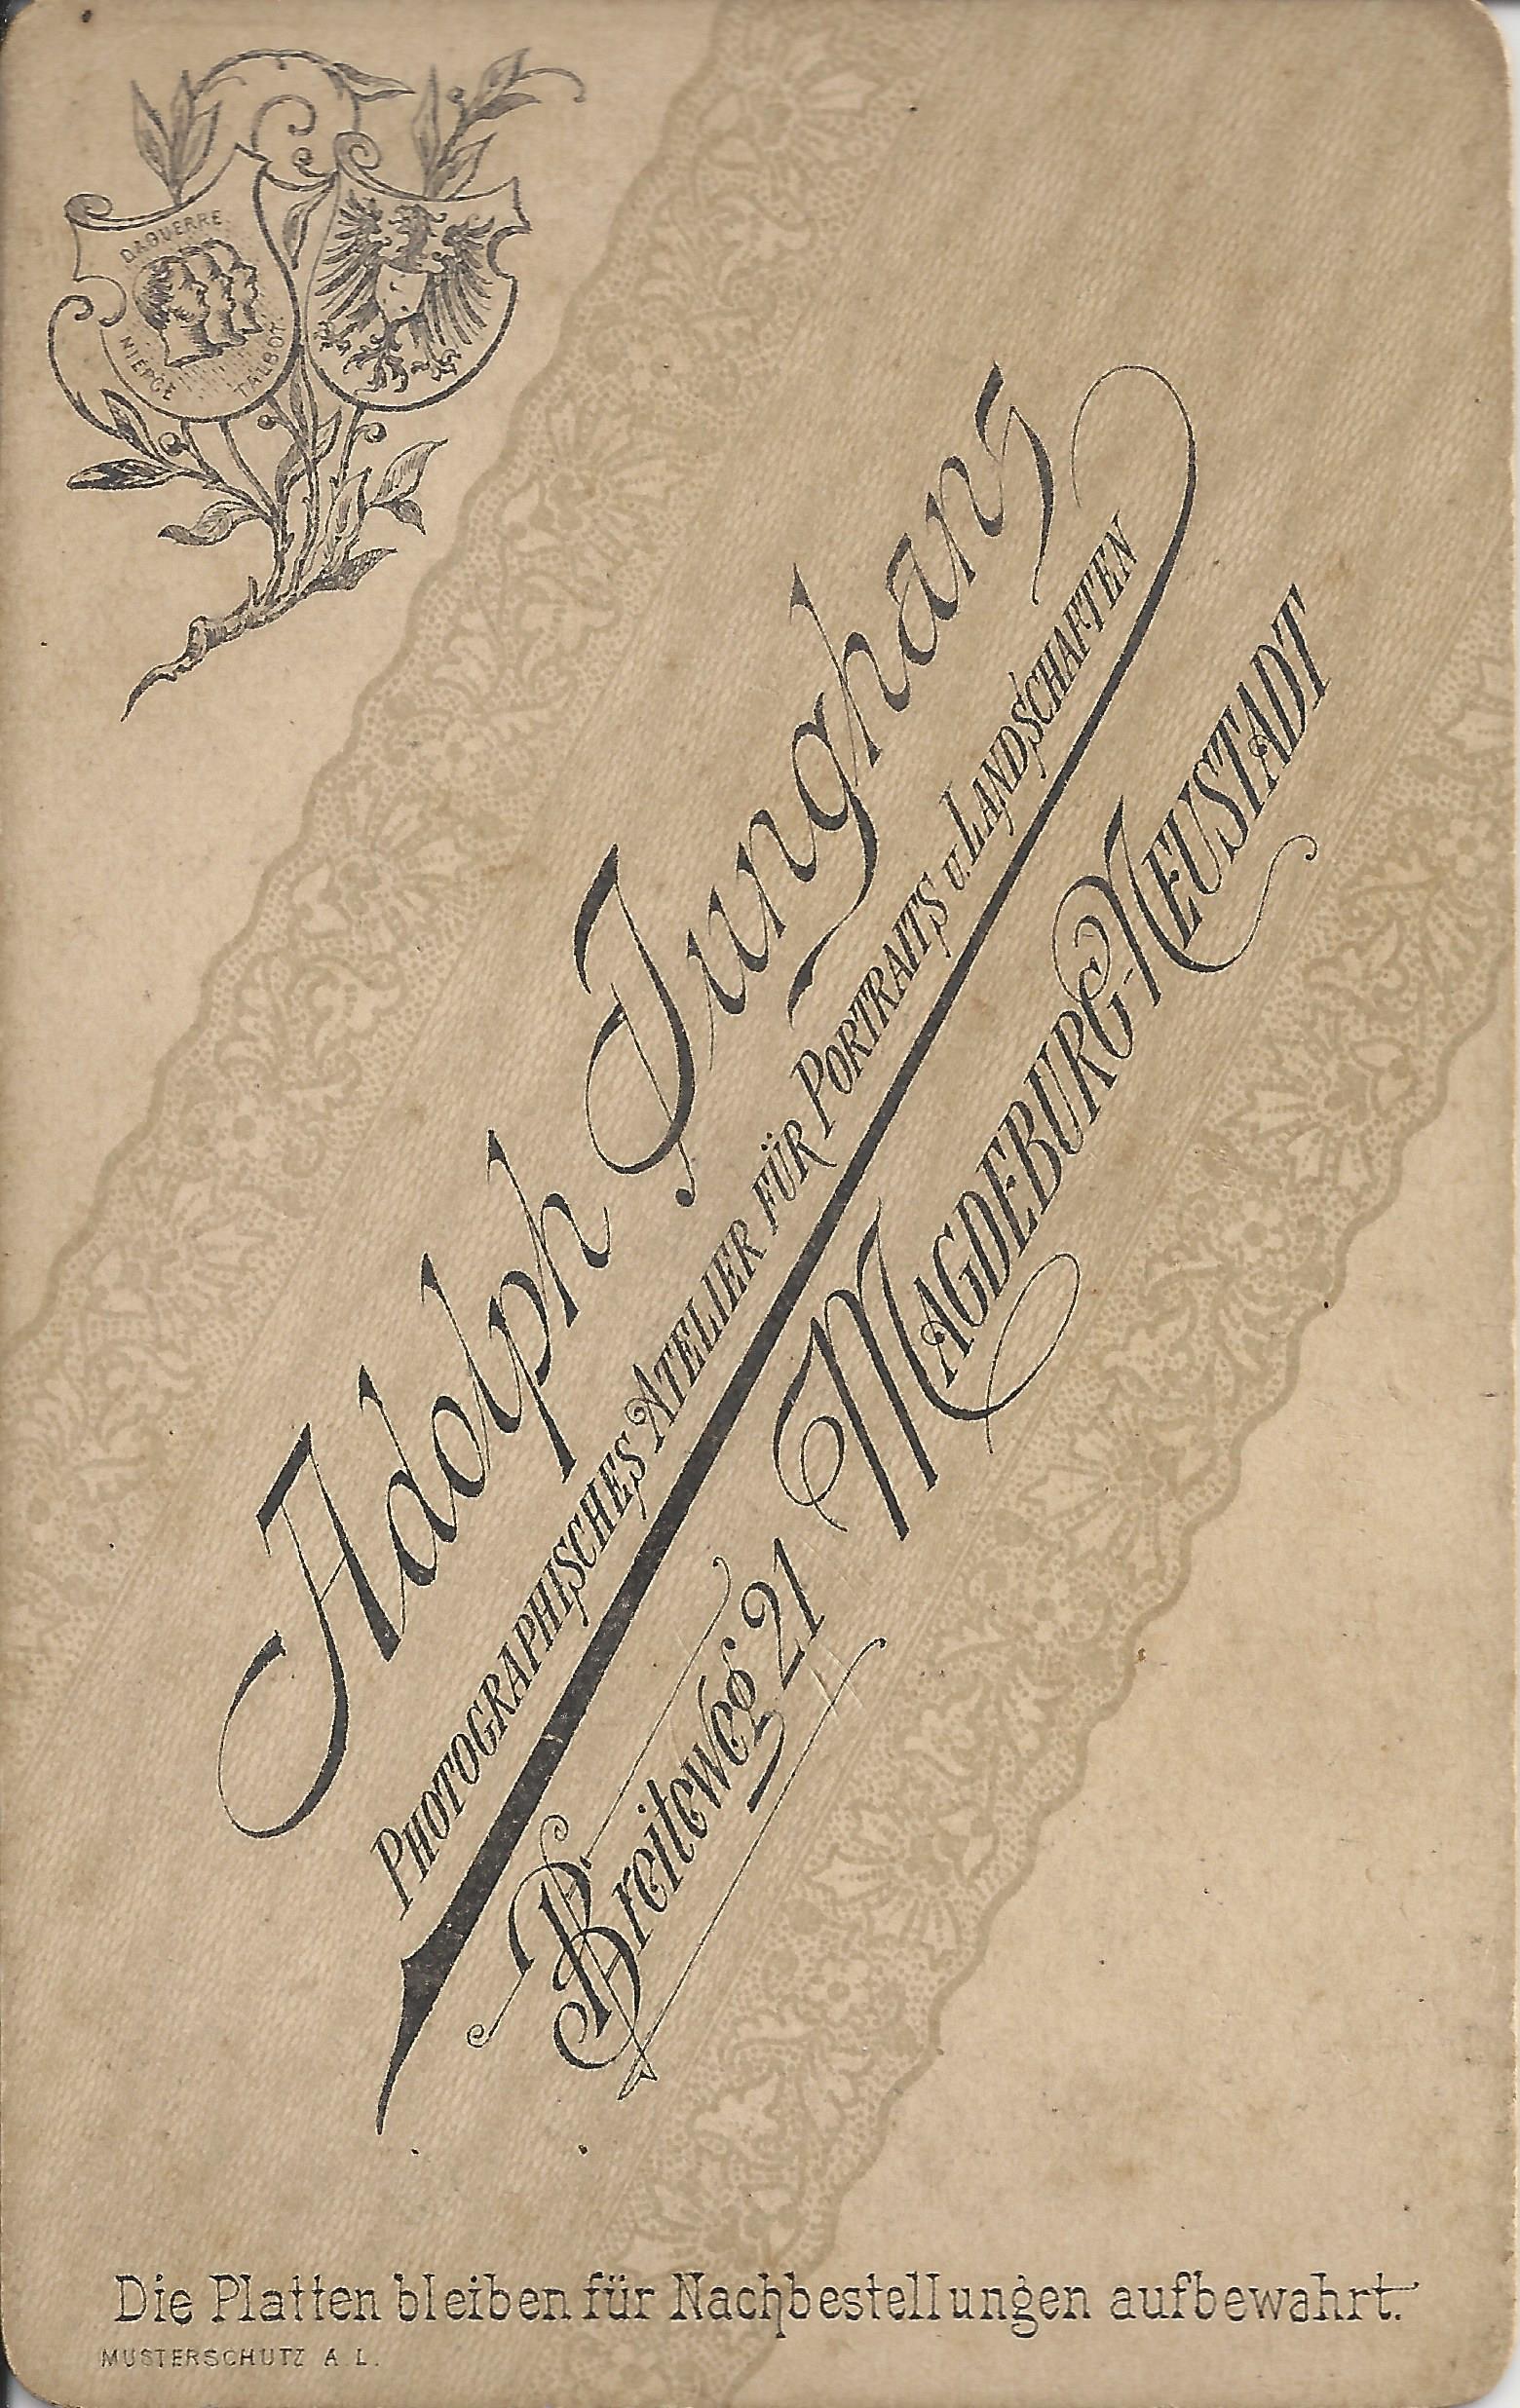 DAGUERRE
NIÉPCE
TALBOT.
Adolph Junghans
PHOTOGRAPHISCHES ATELIER FÜR PORTRAITS U. LANDSCHAFTEN
Breiteweg 21 MAGDEBURG-NEUSTADT
Die Platten bleiben für Nachbestellungen aufbewahrt.
MUSTERSCHUTZ A. L.